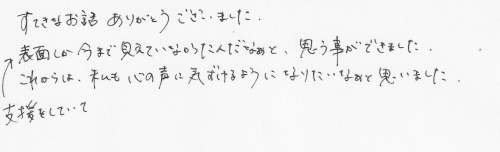 すてきなお話 ありがとうございました.
表面しか今まで見えていなかったんだなぁと、思う事ができました.
これからは、私も心の声に気ずけるようになりたいなぁと思いました.
支援をしていて